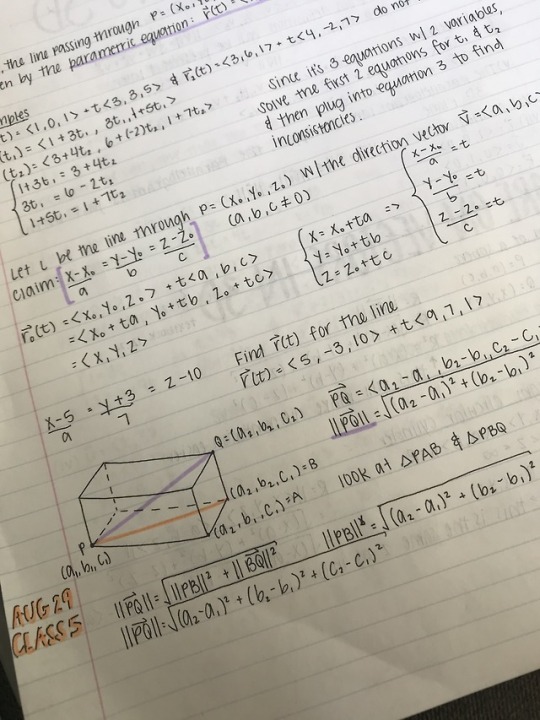 , the line passing through P = (x₀, y₀
en by the parametric equation: r⃗(t) = <
do not
mples
t) = <1, 0, 1> + t<3, 3, 5> & r⃗₂(t) = <3, 6, 1> + t<4, -2, 7>
(t₁) = <1+3t₁, 3t₁, 1+5t₁>
(t₂) = <3+4t₂, 6+(-2)t₂, 1+7t₂>
1+3t₁ = 3+4t₂
3t₁ = 6-2t₂
1+5t₁ = 1+7t₂
since it's 3 equations w/ 2 variables,
solve the first 2 equations for t₁ & t₂
& then plug into equation 3 to find
inconsistencies.
Let L be the line through P = (x₀, y₀, z₀) w/ the direction vector v⃗ = <a, b, c>
(a, b, c ≠ 0)
claim: [x-x₀/a = y-y₀/b = z-z₀/c]
r⃗₀(t) = <x₀, y₀, z₀> + t<a, b, c>
= <x₀+ta, y₀+tb, z₀+tc>
= <x, y, z>
x = x₀+ta
y = y₀+tb
z = z₀+tc
=>
x-x₀/a = t
y-y₀/b = t
z-z₀/c = t
Find r⃗(t) for the line
x-5/9 = y+3/7 = z-10
r⃗(t) = <5, -3, 10> + t<9, 7, 1>
PQ⃗ = <a₂-a₁, b₂-b₁, c₂-c₁
||PQ⃗|| = √(a₂-a₁)² + (b₂-b₁)²
Q = (a₂, b₂, c₂)
(a₂, b₂, c₁) = B
(a₂, b₁, c₁) = A
P
(a₁, b₁, c₁)
look at △PAB & △PBQ
||PQ⃗|| = √||PB||² + ||BQ⃗||²
||PB||² = √(a₂-a₁)² + (b₂-b₁)²
||PQ⃗|| = √(a₂-a₁)² + (b₂-b₁)² + (c₂-c₁)²
AUG 29
CLASS 5